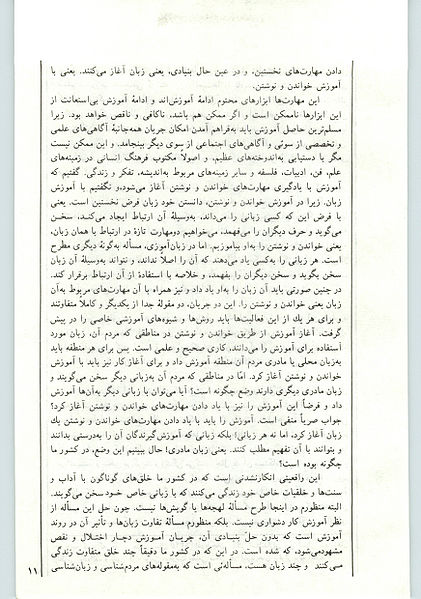 دادن مهارت‌های نخستین، و در عین حال بنیادی، یعنی زبان آغاز می‌کنند. یعنی با
آموزش خواندن و نوشتن.
این مهارت‌ها ابزارهای محتوم ادامهٔ آموزش‌اند و ادامهٔ آموزش بی‌استعانت از
این ابزارها ناممکن است و اگر ممکن هم باشد، ناکافی و ناقص خواهد بود. زیرا
مسلم‌ترین حاصل آموزش باید به‌فراهم آمدن امکان جریان همه‌جانبهٔ آگاهی‌های علمی
و تخصصی از سوئی و آگاهی‌های اجتماعی از سوی دیگر بینجامد. و این ممکن نیست
مگر با دستیابی به‌اندوخته‌های عظیم، و اصولاً مکتوب فرهنگ انسانی در زمینه‌های
علم، فن، ادبیات، فلسفه و سایر زمینه‌های مربوط به‌اندیشه، تفکر و زندگی. گفتیم که
آموزش با یادگیری مهارت‌های خواندن و نوشتن آغاز می‌شود،و نگفتیم با آموزش
زبان. زیرا در آموزش خواندن و نوشتن، دانستن خود زبان فرض نخستین است. یعنی
با فرض این که کسی زبانی را می‌داند، به‌وسیلهٔ آن ارتباط ایجاد می‌کند، سخن
می‌گوید و حرف دیگران را می‌فهمد، می‌خواهیم دومهارت تازهٔ در ارتباط با همان زبان،
یعنی خواندن و نوشتن را به‌او بیاموزیم. اما در زبان‌آموزی، مسأله به‌گونهٔ دیگری مطرح
است. هر زبانی را به‌کسی یاد می‌دهند که آن را اصلاً نداند، و نتواند به‌وسیلهٔ آن زبان
سخن بگوید و سخن دیگران را بفهمد، و خلاصه با استفادهٔ از آن ارتباط برقرار کند.
در چنین صورتی باید آن زبان را به‌او یاد داد و نیز همراه با آن مهارت‌های مربوط به‌آن
زبان یعنی خواندن و نوشتن را. این دو جریان، دو مقولهٔ جدا از یکدیگر و کاملاً متفاوتند
و برای هر یك از این فعالیت‌ها باید روش‌ها و شیوه‌های آموزشی خاصی را در پیش
گرفت. آغاز آموزش از طریق خواندن و نوشتن در مناطقی که مردم آن، زبان مورد
استفاده برای آموزش را می‌دانند، کاری صحیح و علمی است. پس برای هر منطقه باید
به‌زبان محلی یا مادری مردم آن منطقه آموزش داد و برای آغاز کار نیز باید با آموزش
خواندن و نوشتن آغاز کرد. امّا در مناطقی که مردم آن به‌زبانی دیگر سخن می‌گویند و
زبان مادری دیگری دارند وضع چگونه است؟ آیا می‌توان با زبانی دیگر به‌آن‌ها آموزش
داد و فرضاً این آموزش را نیز با یاد دادن مهارت‌های خواندن و نوشتن آغاز کرد؟
جواب صریحاً منفی است. آموزش را باید با یاد دادن مهارت‌های خواندن و نوشتن یك
زبان آغاز کرد، اما نه هر زبانی؛ بلکه زبانی که آموزش‌گیرندگان آن را به‌درستی بدانند
و بتوانند با آن تفهیم مطلب کنند. یعنی زبان مادری! حال ببینیم این وضع، در کشور ما
چگونه بوده است؟
این واقعیتی انکارنشدنی است که در کشور ما خلق‌های گوناگون با آداب و
سنت‌ها و خلقیات خاص خود زندگی می‌کنند که با زبانی خاص خود سخن می‌گویند.
البته منظورم در اینجا طرح مسألهٔ لهجه‌ها یا گویش‌ها نیست. چون حل این مسأله از
نظر آموزش کار دشواری نیست. بلکه منظورم مسألهٔ تفاوت زبان‌ها و تأثیر آن در روند
آموزش است که بدون حلّ بنیادی آن، جریان آموزش دچار اختلال و نقص
مشهودمی‌شود، که شده است. در این که در کشور ما دقیقاً چند خلق متفاوت زندگی
می‌کنند و چند زبان هست، مسأله‌ئی است که به‌مقوله‌های مردم‌شناسی و زبان‌شناسی
۱۱